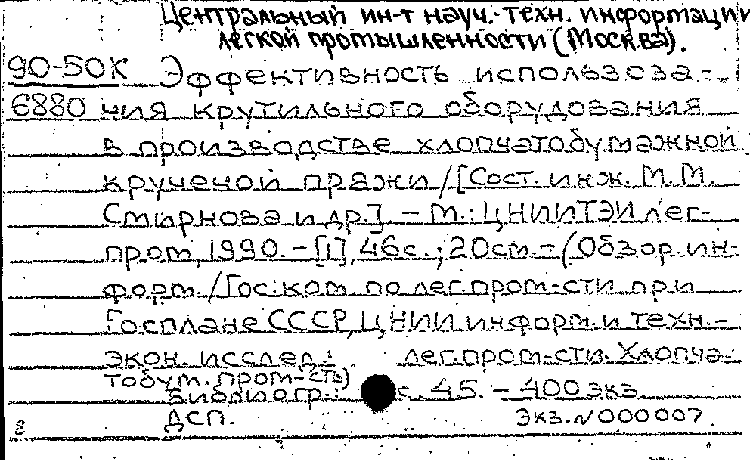 Центральный ин-т науч.-техн. информации
легкой промышленности (Москва).
90-50К Эффективность использова-
6880 ния крутильного оборудования
в производстве хлопчатобумажной
крученой пряжи / [Сост. инж. М. М.
Смирнова и др.]. – М.: ЦНИИТЭИлег-
пром, 1990. – [1], 46 с.; 20 см. – (Обзор. ин-
форм. / Гос. ком. по лег. пром-сти при
Госплане СССР, ЦНИИ информ. и техн.-
экон. исслед. лег. пром-сти. Хлопча-
тобум. пром-сть)
Библиогр.: с. 45. – 400 экз.
ДСП. Экз. N 000007.